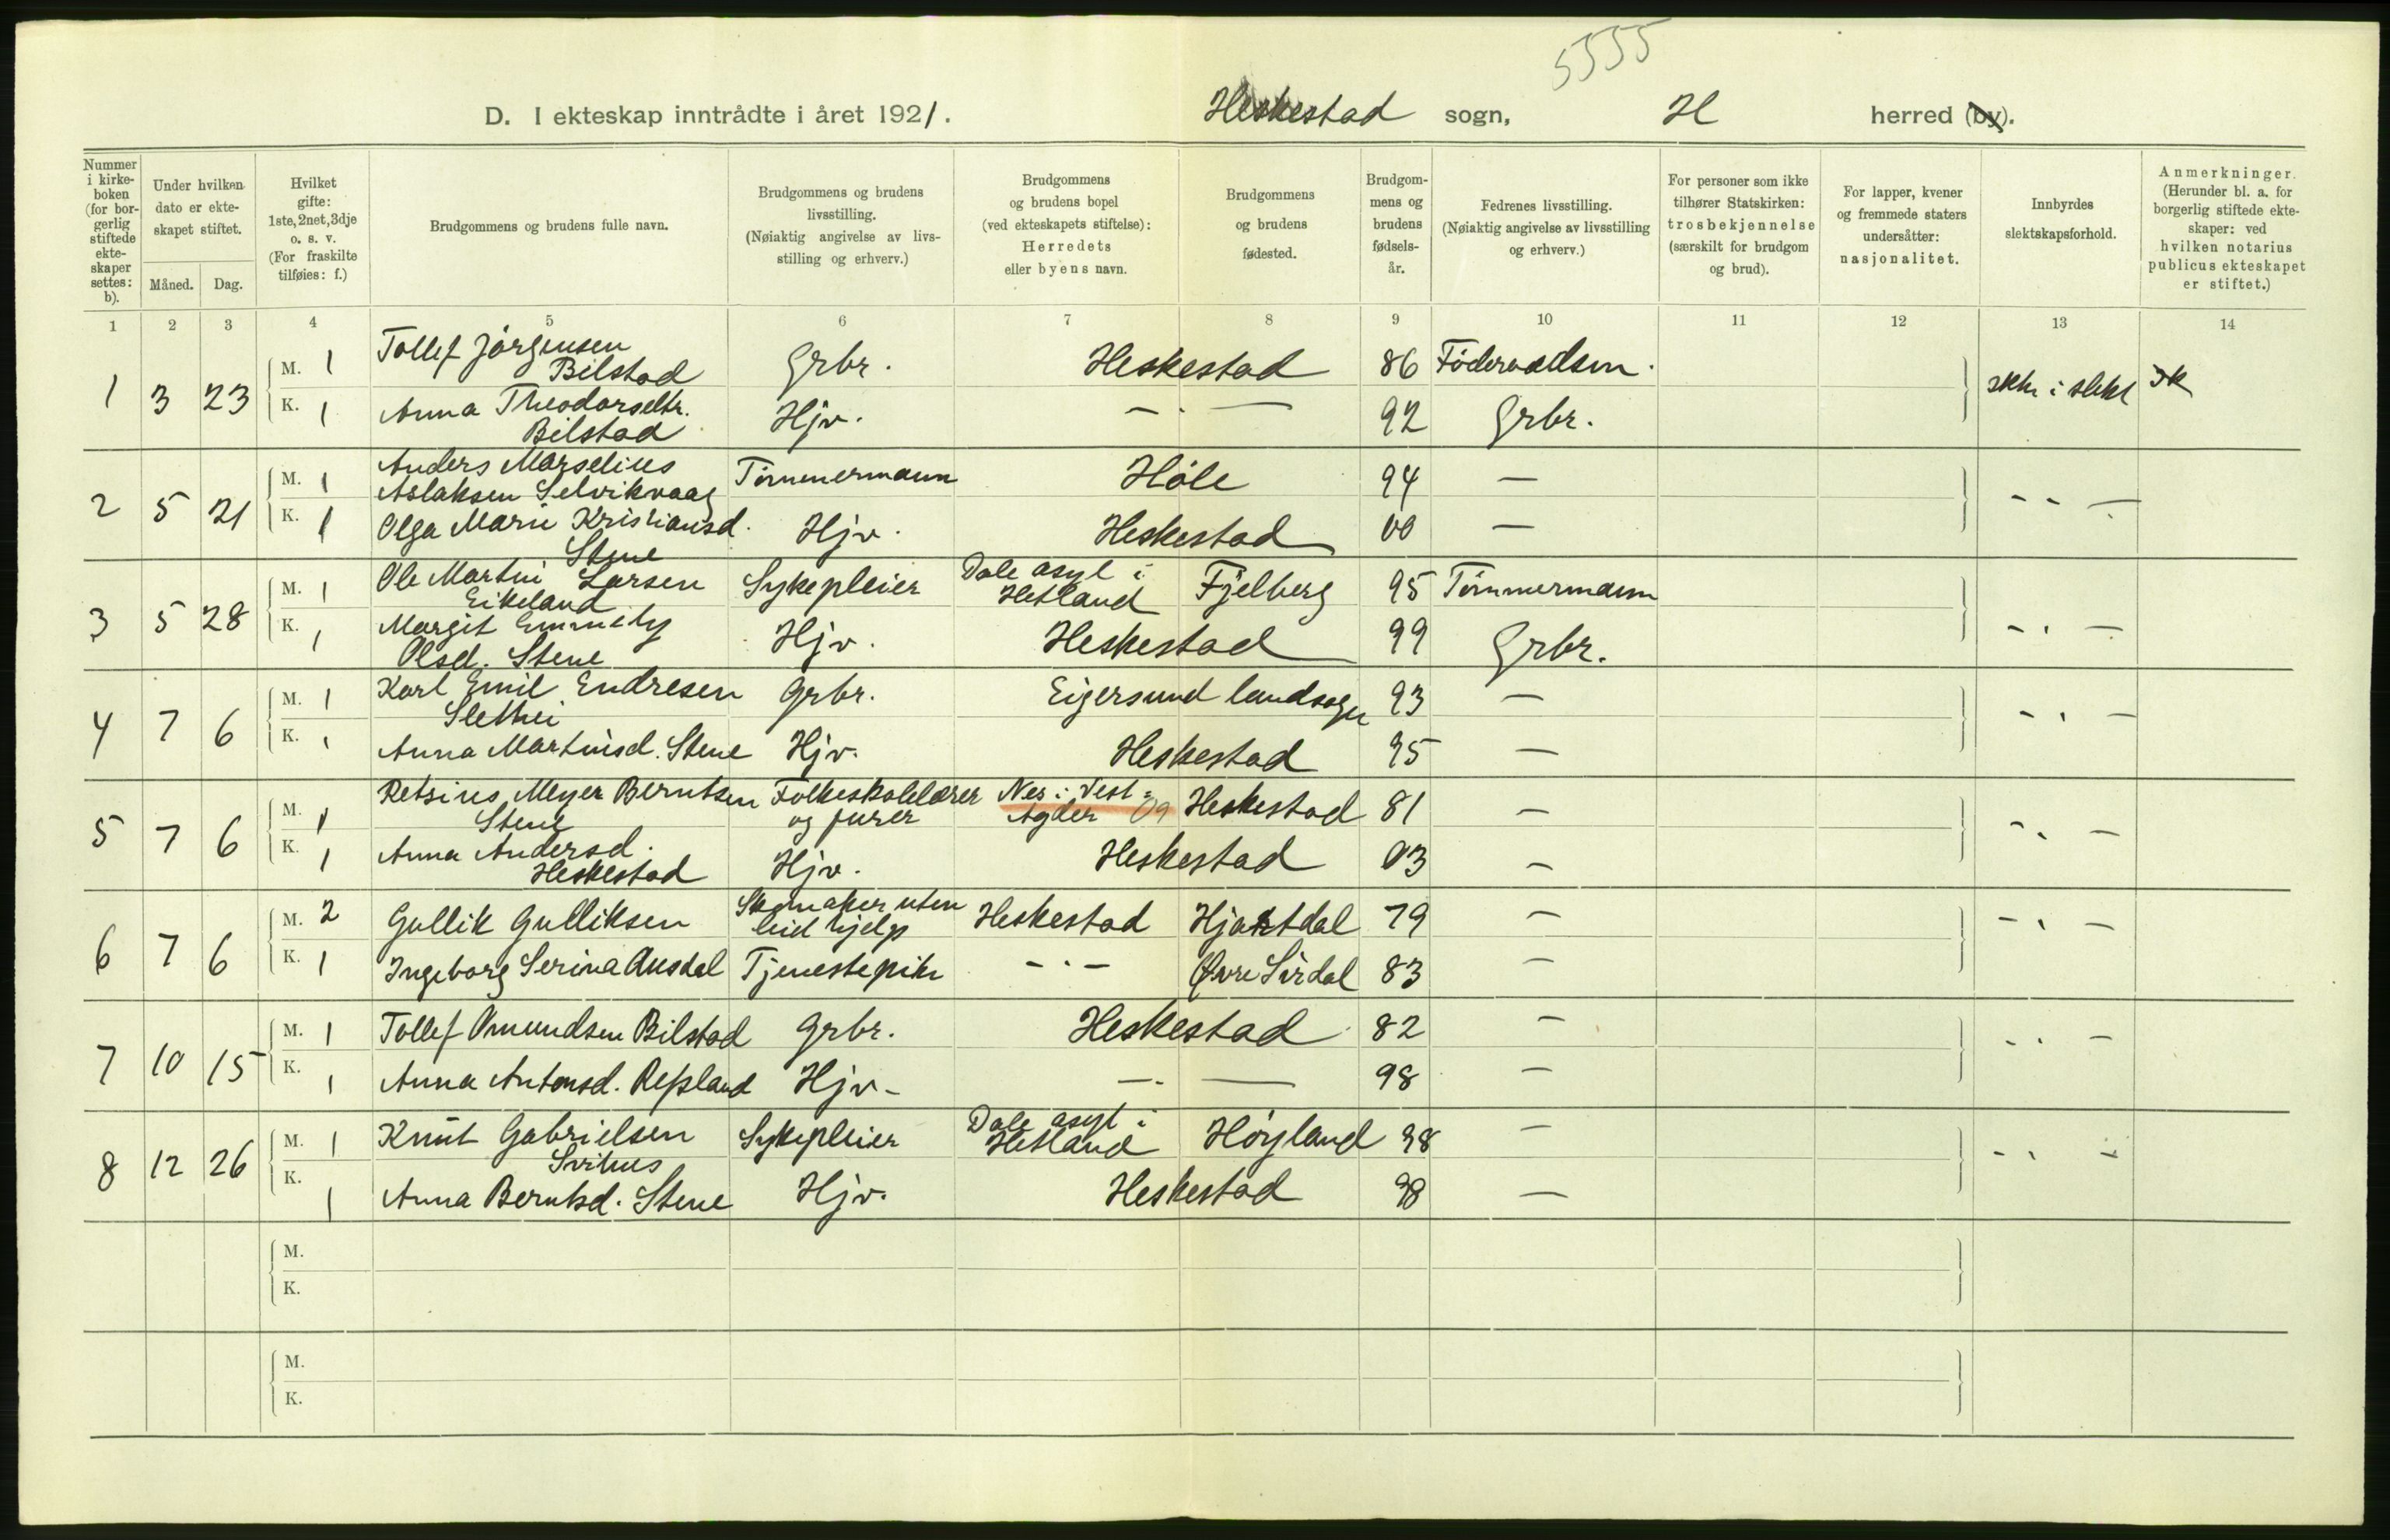 5555
D. I ekteskap inntrådte i året 1921. Heskestad sogn, H herred (by).
Nummer i kirkeboken (for borgerlig stiftede ekteskaper settes: b).
Under hvilken dato er ekteskapet stiftet.
Måned. Dag.
Hvilket gifte: 1ste, 2net, 3dje o. s. v. (For fraskilte tilføies: f.)
Brudgommens og brudens fulle navn.
Brudgommens og brudens livsstilling. (Nøiaktig angivelse av livsstilling og erhverv.)
Brudgommens og brudens bopel (ved ekteskapets stiftelse): Herredets eller byens navn.
Brudgommens og brudens fødested.
Brudgommens og brudens fødselsår.
Fedrenes livsstilling. (Nøiaktig angivelse av livsstilling og erhverv.)
For personer som ikke tilhører Statskirken: trosbekjennelse (særskilt for brudgom og brud).
For lapper, kvener og fremmede staters undersåtter: nasjonalitet.
Innbyrdes slektskapsforhold.
Anmerkninger. (Herunder bl. a. for borgerlig stiftede ekteskaper: ved hvilken notarius publicus ekteskapet er stiftet.)
1 2 3 4 5 6 7 8 9 10 11 12 13 14
1 3 23 M. 1 Tollef Jørgensen Bilstad Grbr. Heskestad 86 Føderaadsm. ikke i slekt
K. 1 Anna Theodorsdtr. Bilstad Hjv. — · — 92 Grbr.
2 5 21 M. 1 Anders Marselius Aslaksen Selvikvaag Tømmermann Høle 94 — - - —
K. 1 Olga Marie Kristiansd. Stene Hjv. Heskestad 00 —
3 5 28 M. 1 Ole Martin Larsen Eikeland Sykepleier Dale asyl i Hetland Fjelberg 95 Tømmermann - · —
K. 1 Margit Emmely Olsd. Stene Hjv. Heskestad 99 Grbr.
4 7 6 M. 1 Karl Emil Endresen Slethei Grbr. Eigersund landsogn 93 — - · —
K. 1 Anna Martinsd. Stene Hjv. Heskestad 95 —
5 7 6 M. 1 Retsius Meyer Berntsen Stene Folkeskolelærer og furer Nes i Vest-Agder 09 Heskestad 81 — - · —
K. 1 Anna Andersd. Heskestad Hjv. Heskestad 03 —
6 7 6 M. 2 Gullik Gulliksen Skomaker uten leid hjelp Heskestad Hjartdal 79 — - · —
K. 1 Ingeborg Serina Ausdal Tjenestepike - · - Øvre Sirdal 83 —
7 10 15 M. 1 Tollef Omundsen Bilstad Grbr. Heskestad 82 — - · —
K. 1 Anna Antonsd. Refsland Hjv. — · — 98 —
8 12 26 M. 1 Knut Gabrielsen Svihus Sykepleier Dale asyl i Hetland Høyland 98 — - · -
K. 1 Anna Berntsd. Stene Hjv. Heskestad 98 —
M.
K.
M.
K.